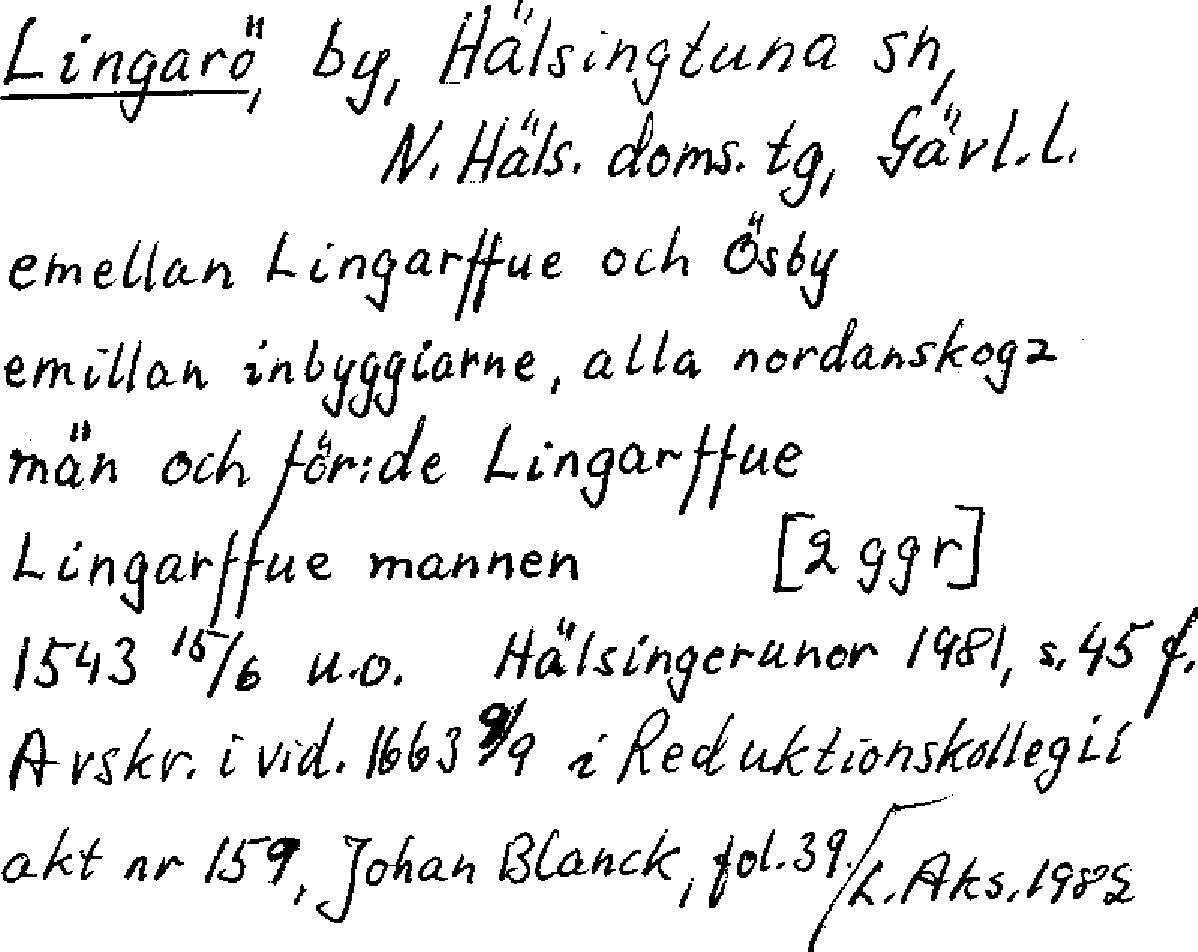 Lingarö, by, Hälsingtuna sn,
N. Häls. doms. tg, Gävl. l.
emellan Lingarffue och Ösby
emillan inbyggiarne, alla nordanskogz
män och för:de Lingarffue
Lingarffue mannen [2 ggr]
1543 15/6 u.o. Hälsingerunor 1981, s. 45 f.
Avskr. i vid. 1663 9/9 i Reduktionskollegii
akt nr 159, Johan Blanck, fol. 39. / L. Aks. 1982